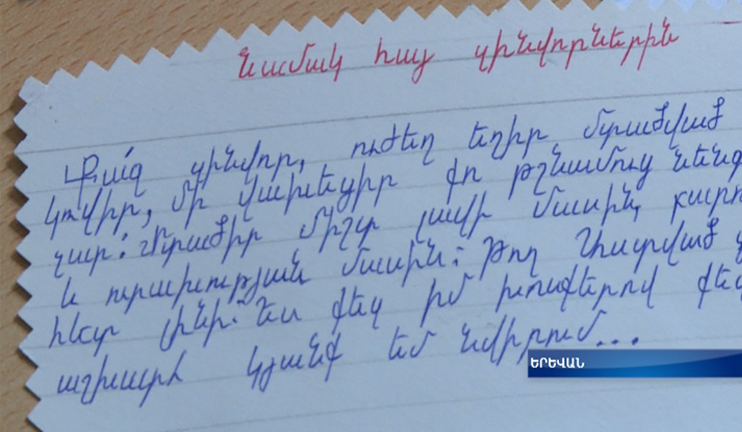 Նամակ հայ զինվորներին
Քա՛ջ զինվոր, ուժեղ եղիր մտածված
կռվիր, մի վախեցիր քո թշնամուց նենգ
չար: Մտածիր միշտ լավի մասին,
և ուրախության մասին: Թող Աստված ք
հետ լինի: Ես քեզ իմ խոսքերով քեզ
աշխարհ կյանք եմ նվիրում...
ԵՐԵՎԱՆ